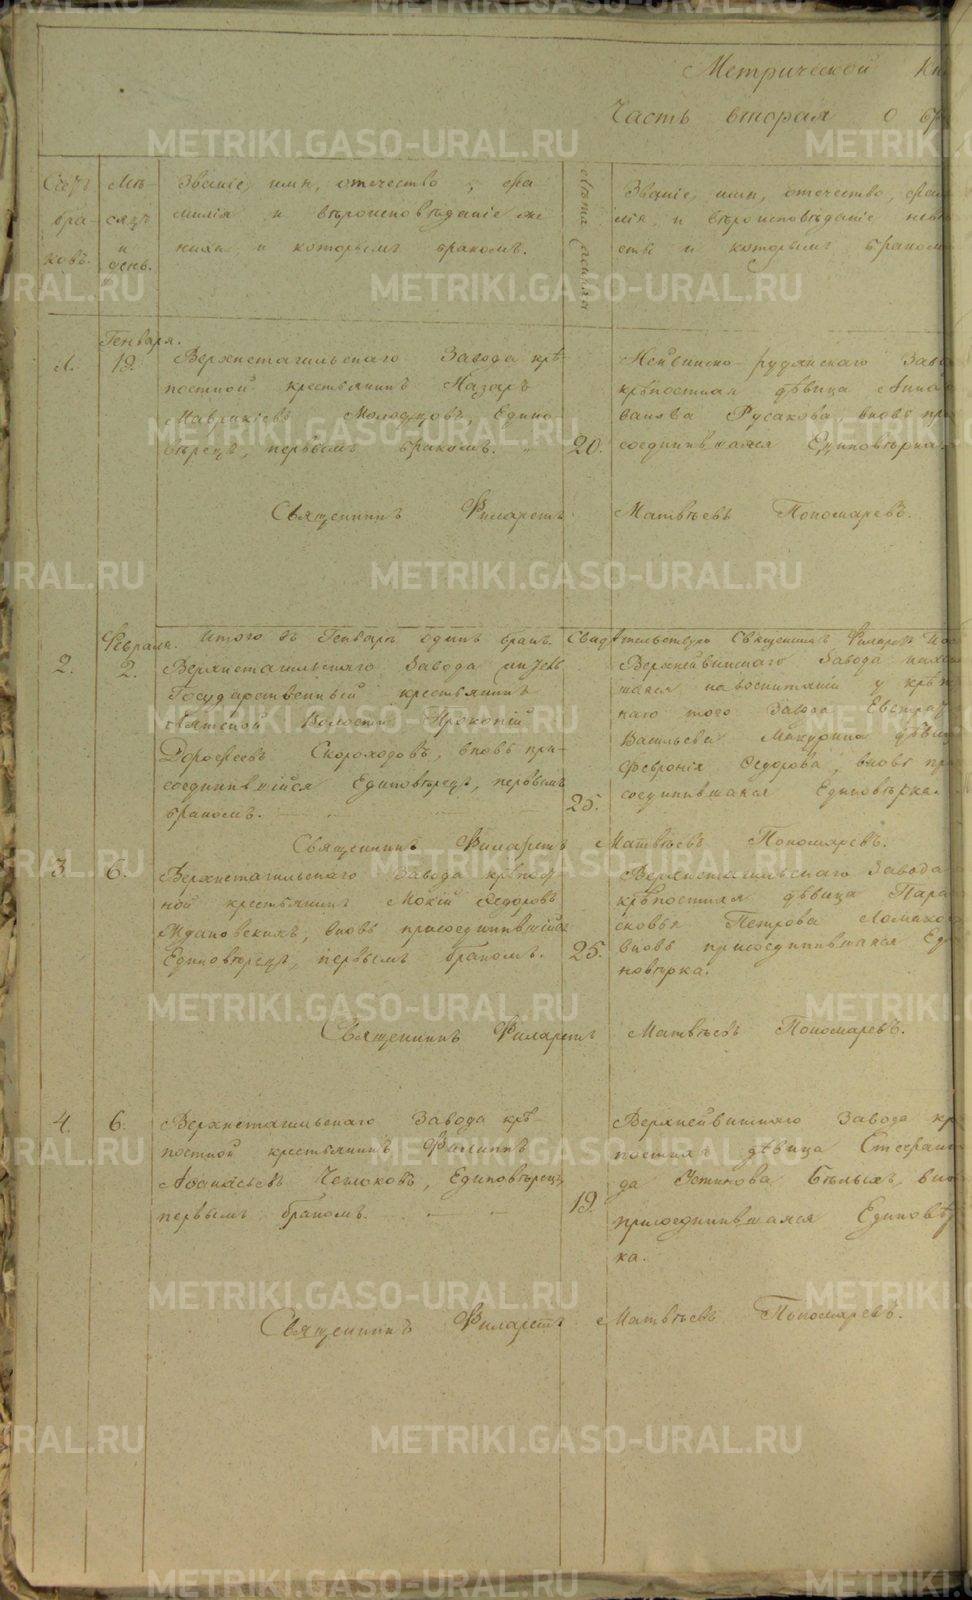 Метрической Кни
Часть вторая о бр
Счетъ бра- ковъ.
Мѣ- сяцъ и день.
Званіе, имя, отчество, фа-
милія и вѣроисповѣданіе же
ниха и которымъ бракомъ.
Лѣта жениха
Званіе, имя, отчество, фами
лія и вѣроисповѣданіе невѣ
сты и которымъ бракомъ
Генваря.
1. 19.
Верхнетагильскаго Завода крѣ-
постной крестьянинъ Назаръ
Маврикіевъ Молодцовъ, Едино-
вѣрецъ, первымъ бракомъ.
20.
Невьинско-рудянскаго Заво
крѣпостная дѣвица Анна
ванова Русакова, вновь при
соединившаяся Единовѣрка.
Священникъ Филаретъ Матвѣевъ Пономаревъ.
Итого въ Генварѣ одинъ бракъ. Свидѣтельствую Священникъ Филаретъ По
Февраля.
2. 2.
Верхнетагильскаго Завода
Государственный крестьянинъ
Вятской Волости Прокопій
Дорофеевъ Скороходовъ, вновь при-
соединившійся Единовѣрецъ, первымъ
бракомъ.
25.
Верхнейвинскаго Завода нахо
щаяся на воспитаніи у крѣп
наго того Завода Евстра
Васильева Макурина дѣви
Февронія Федорова, вновь пр
соединившаяся Единовѣрка.
Священникъ Филаретъ Матвѣевъ Пономаревъ.
3. 6.
Верхнетагильскаго Завода крѣпост
ной крестьянинъ Мокій Федоровъ
Ждановскихъ, вновь присоединившійся
Единовѣрецъ, первымъ бракомъ.
25.
Верхнетагильскаго Завода
крѣпостная дѣвица Пара
сковья Петрова Ломако
вновь присоединившаяся Ед
новѣрка.
Священникъ Филаретъ Матвѣевъ Пономаревъ.
4. 6.
Верхнетагильскаго Завода крѣ-
постной крестьянинъ Филиппъ
Афанасьевъ Чеглоковъ, Единовѣрецъ,
первымъ бракомъ.
19.
Верхнейвинскаго Завода кр
постная дѣвица Стефани
да Устинова Бѣлыхъ, вно
присоединившаяся Единовѣр
ка.
Священникъ Филаретъ Матвѣевъ Пономаревъ.
METRIKI.GASO-URAL.RU